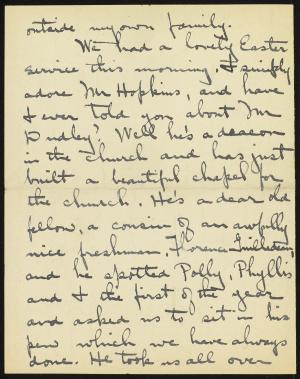 outside my own family.
We had a lovely Easter
service this morning. I simply
adore Mr Hopkins, and have
I ever told you about Mr
Dudley? Well he's a deacon
in the church and has just
built a beautiful chapel for
the church. He's a dear old
fellow, a cousin of an awfully
nice freshman, Florence
and he spotted Polly, Phyllis
and I the first of the year
and asked us to sit in his
pew which we have always
done. He took us all over